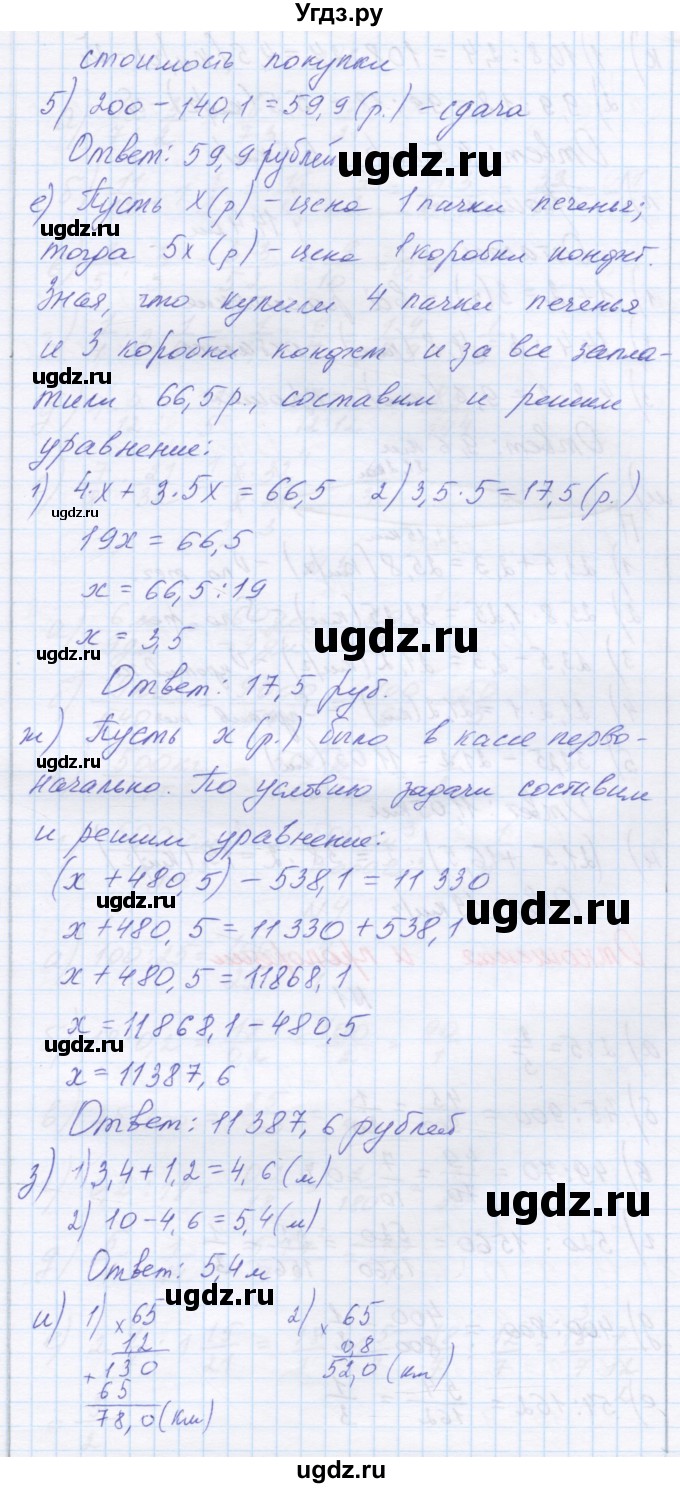 Угдз.ру
стоимость покупки
5) 200 – 140,1 = 59,9 (р.) – сдача
Ответ: 59,9 рублей
ugdz.ru
е) Пусть х (р) – цена 1 пачки печенья;
тогда 5х (р) – цена 1 коробки конфет.
Зная, что купили 4 пачки печенья
и 3 коробки конфет и за все запла-
ugdz.ru
тили 66,5 р., составим и решим
уравнение:
1) 4·х + 3·5х = 66,5 2) 3,5·5 = 17,5 (р.)
ugdz.ru
19х = 66,5
х = 66,5 : 19
х = 3,5
ugdz.ru
ugdz.ru
Ответ: 17,5 руб.
ж) Пусть х (р.) было в кассе перво-
ugdz.ru
начально. По условию задачи составим
и решим уравнение:
(х + 480,5) – 538,1 = 11 330
ugdz.ru
ugdz.ru
х + 480,5 = 11 330 + 538,1
х + 480,5 = 11868,1
х = 11868,1 – 480,5
ugdz.ru
х = 11387,6
Ответ: 11 387,6 рублей
з) 1) 3,4 + 1,2 = 4,6 (м)
ugdz.ru
ugdz.ru
2) 10 – 4,6 = 5,4 (м)
Ответ: 5,4 м
ugdz.ru
и) 1) × 65 2) × 65
1,2 0,8
+ 130 52,0 (км)
65
78,0 (км)
ugdz.ru
ugdz.ru